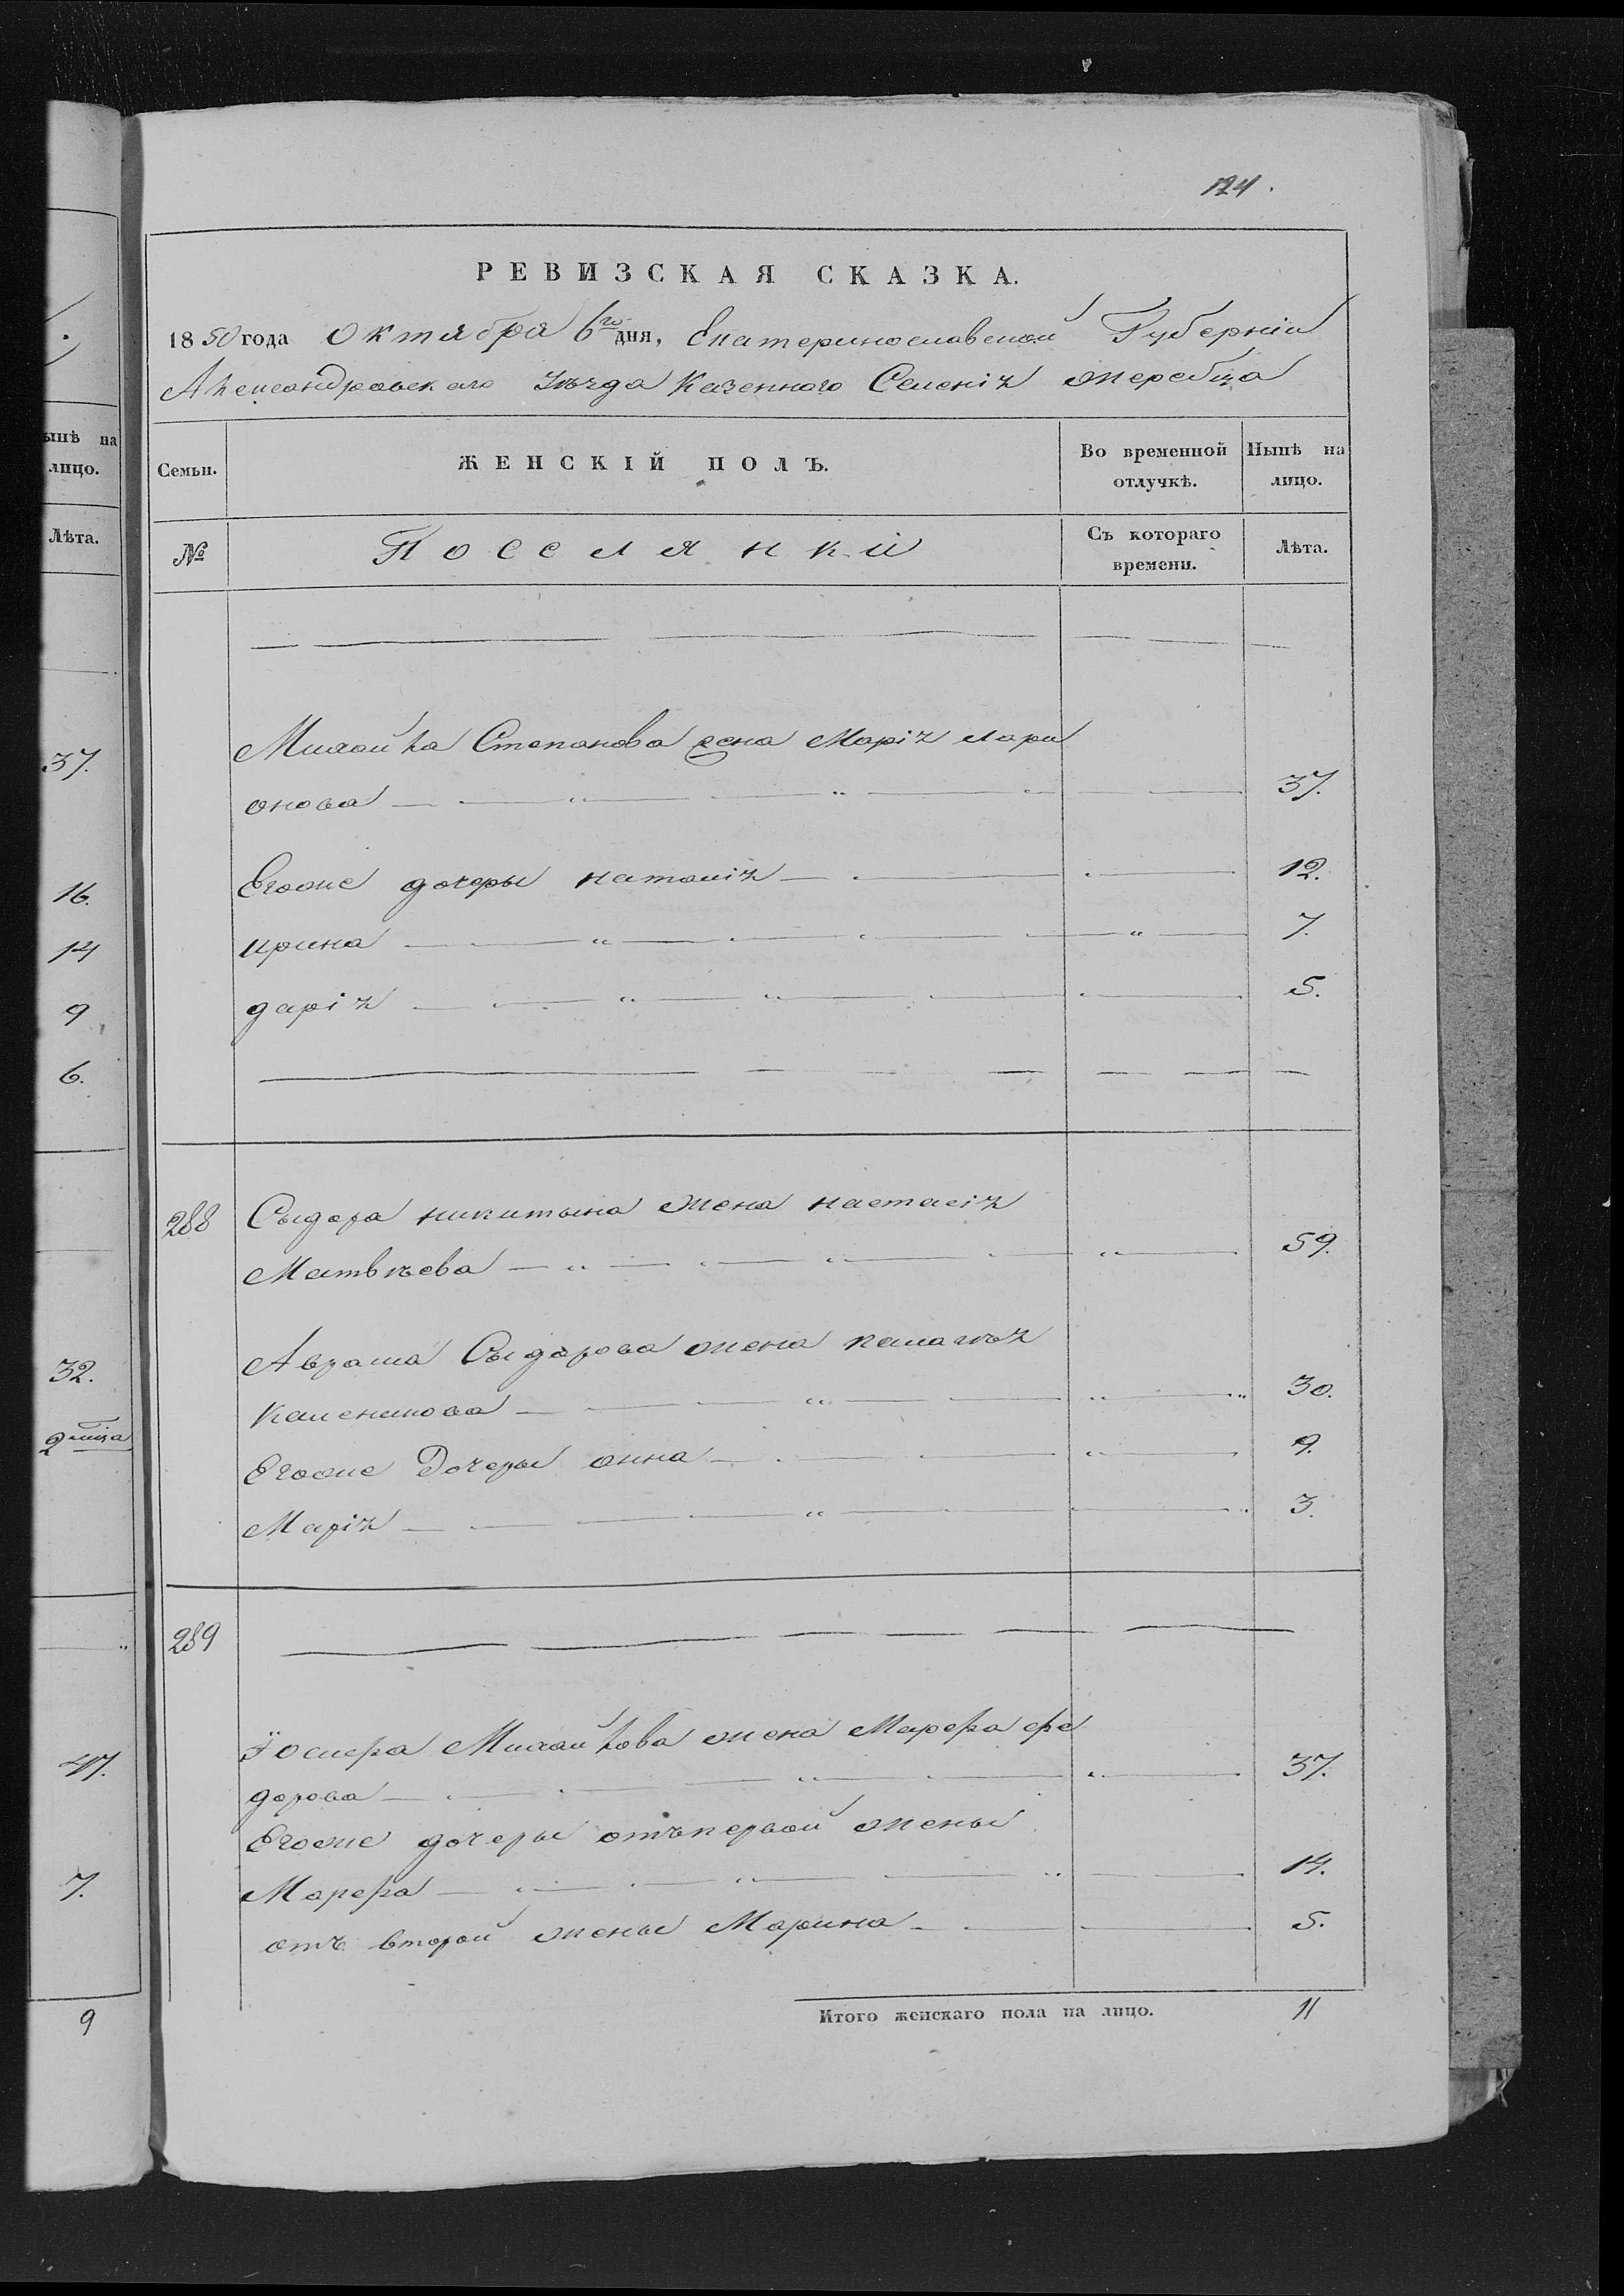 124.
РЕВИЗСКАЯ СКАЗКА.
1850 года Октября 6го дня, Екатеринославской Губерніи
Александровскаго Уѣзда Казенного Селенія Жеребца
ынѣ на лицо.
Семьи. ЖЕНСКІЙ ПОЛЪ. Во временной отлучкѣ. Нынѣ на лицо.
Лѣта.
№ Посселянки Съ котораго времени. Лѣта.
Михайла Степанова жена Марія Лари
37.
онова 37.
16.
Егоже дочеры наталія 12.
14
ирина 7.
9
дарія 5.
6.
288 Сыдора никитына жена настасія
Матвѣева 59.
Аврама Сыдорова жена
32.
30.
2
Егоже Дочеры анна 9.
Марія 3.
289
Їосифа Михайлова жена Марфа фе
47.
дорова 37.
Егоже дочеры отъпервой жены
7.
Марфа 14.
отъ второй жены Марина 5.
9
Итого женскаго пола на лицо. 11